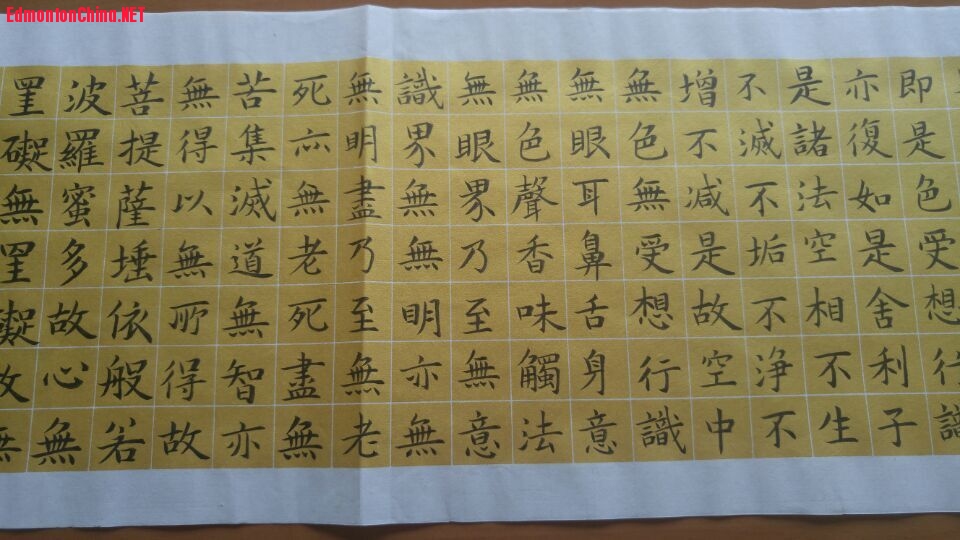 EdmontonChina.NET
即是色受想行識
亦復如是舍利子
是諸法空相不生
不滅不垢不淨不
增不減是故空中
無色無受想行識
無眼耳鼻舌身意
無色聲香味觸法
無眼界乃至無意
識界無無明亦無
無明盡乃至無老
死亦無老死盡無
苦集滅道無智亦
無得以無所得故
菩提薩埵依般若
波羅蜜多故心無
罣礙無罣礙故無